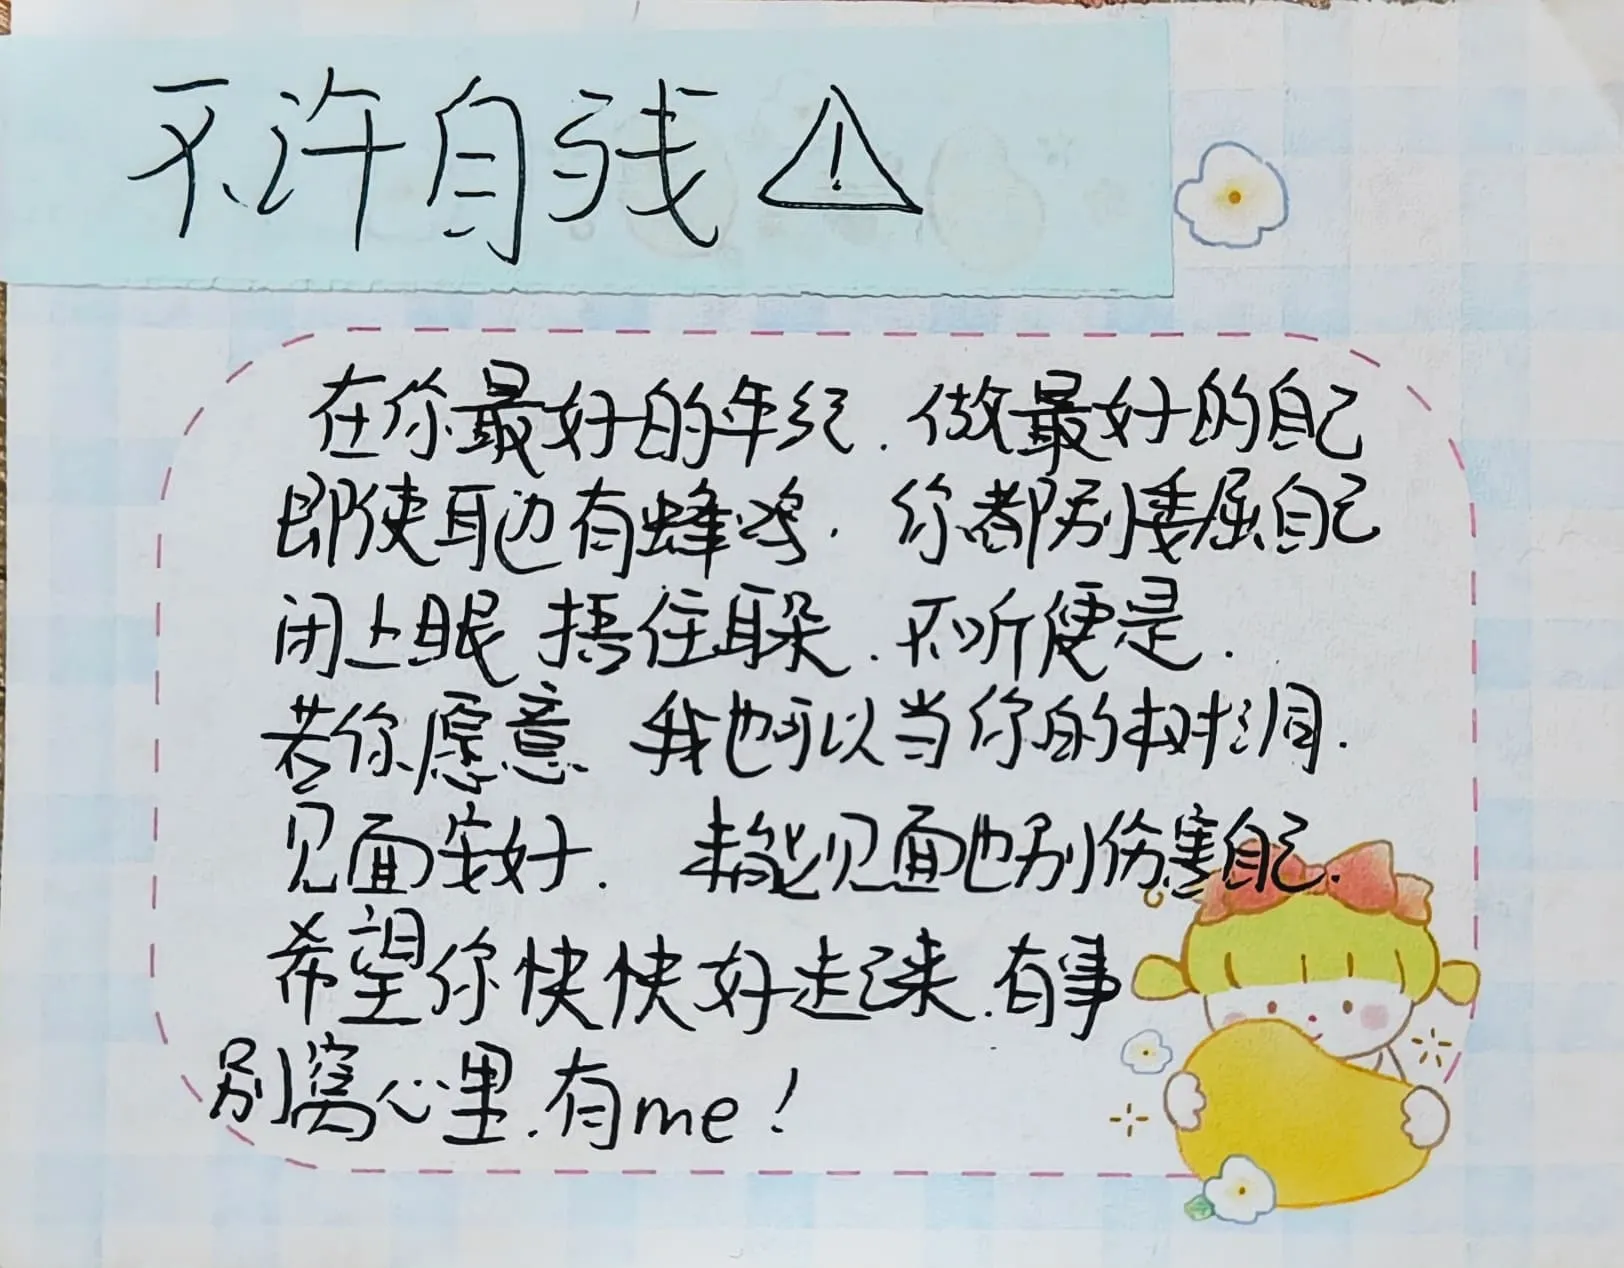 不许自残⚠
在你最好的年纪.做最好的自己
即使耳边有蜂鸣.你都别委屈自己
闭上眼 捂住耳朵.不听便是.
若你愿意 我也可以当你的树洞.
见面安好. 未能见面也别伤害自己.
希望你快快好起来.有事
别窝心里.有me!